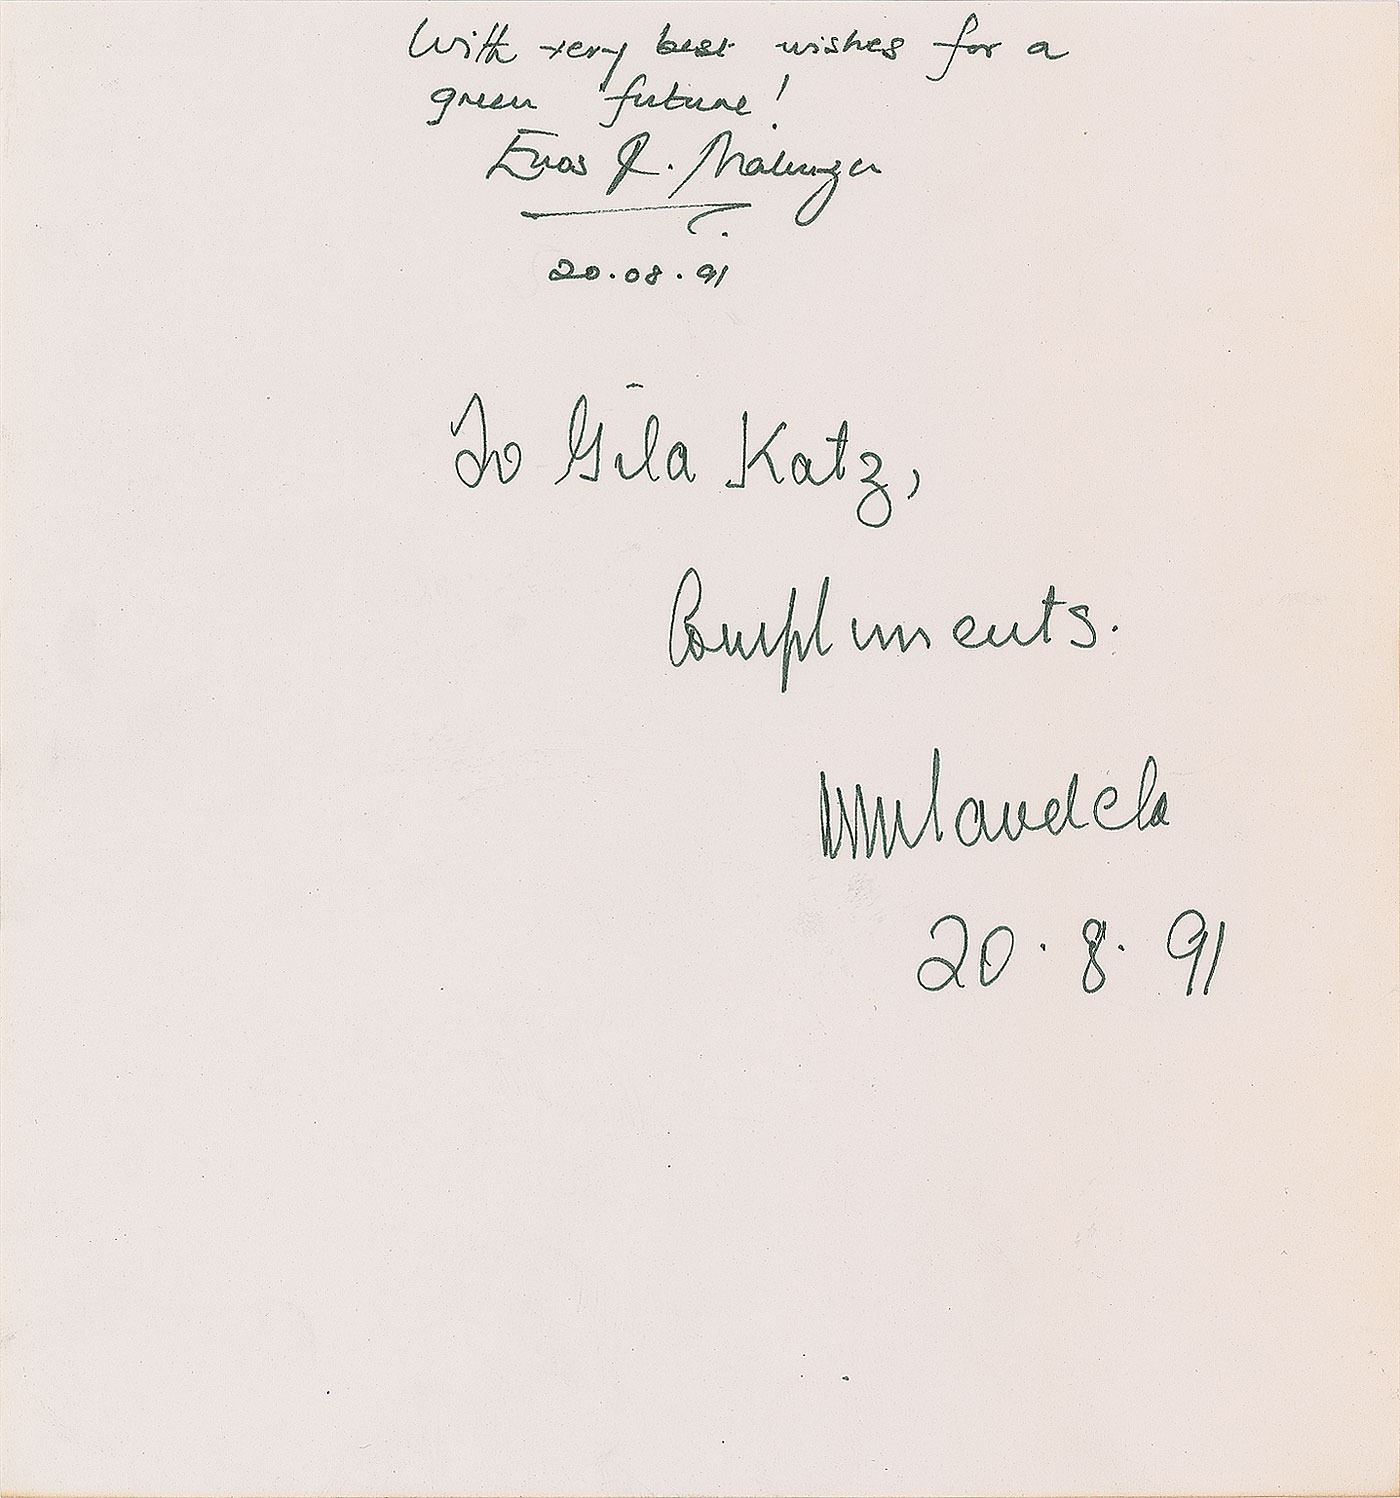 With very best wishes for a
green future!
Enos R. Mabuza
20.08.91
To Gila Katz,
Compliments.
NMandela
20.8.91